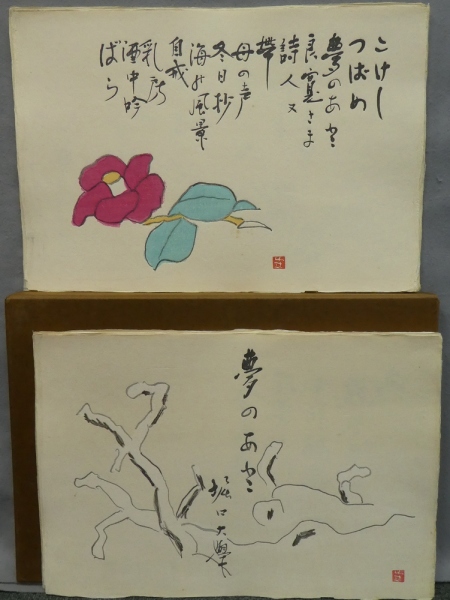 こけし
つばめ
夢のあと
良寛さま
詩人又
帯
母の声
冬日抄
海の風景
自戒
乳房
酒中吟
ばら
夢のあと
堀口大學